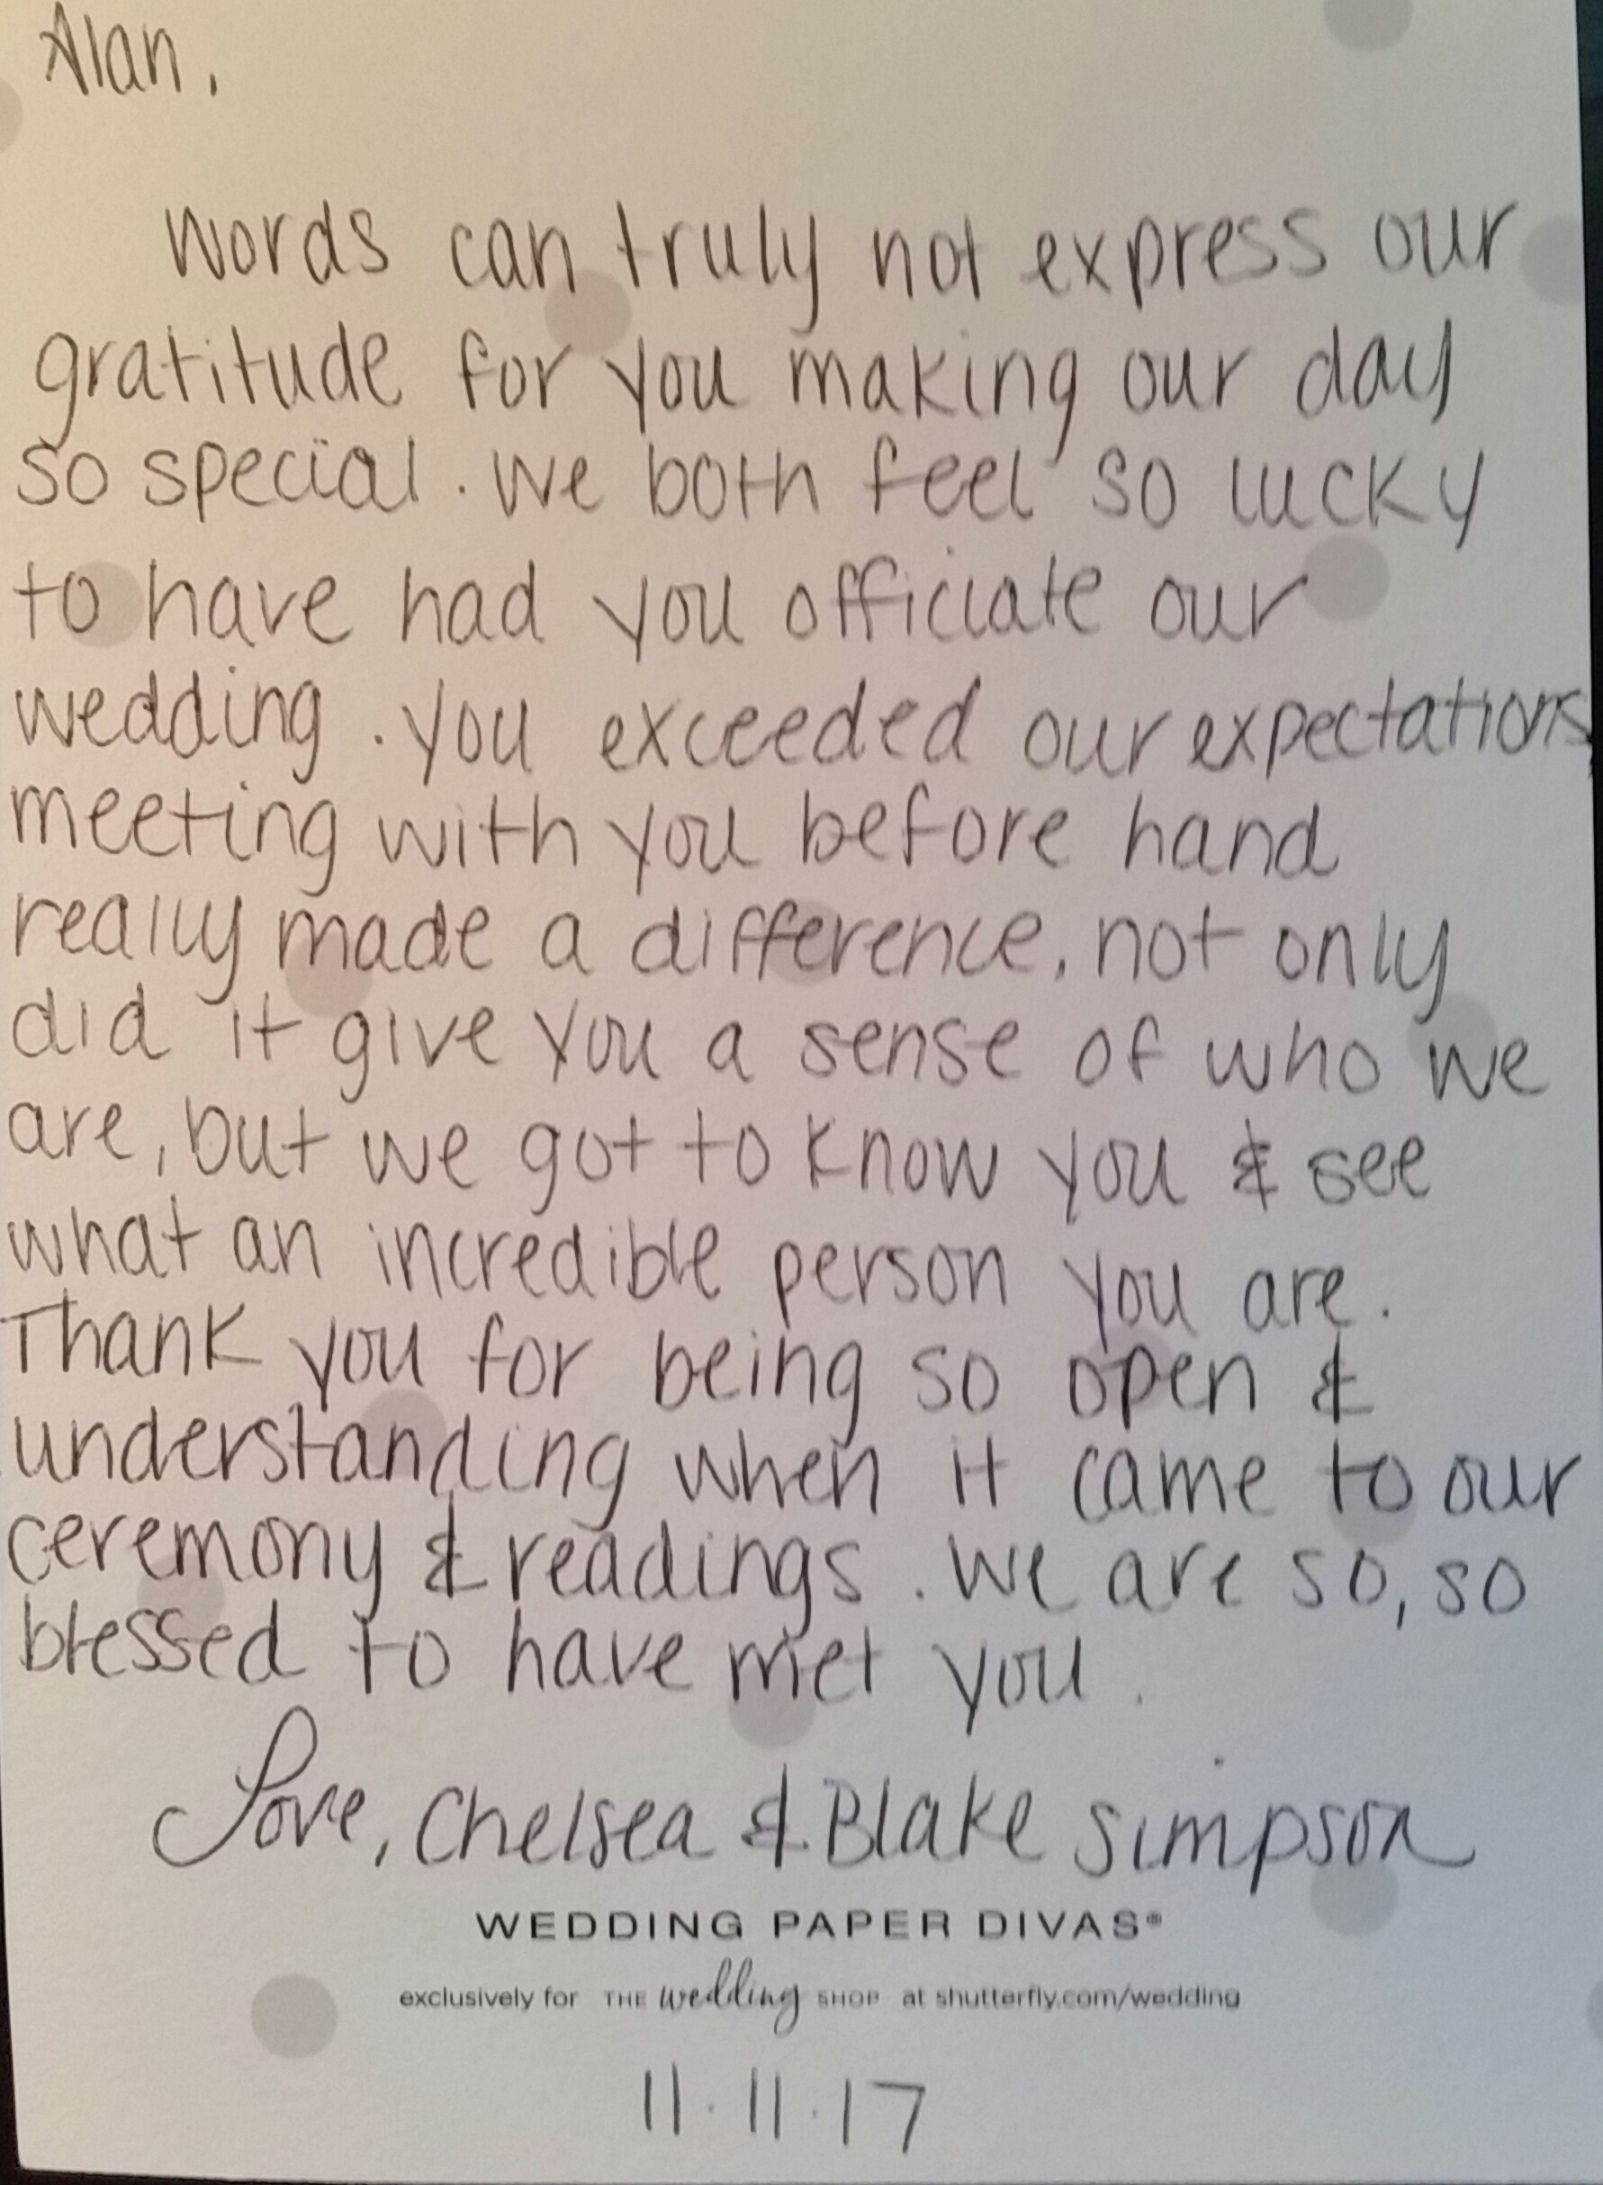 Alan,
Words can truly not express our
gratitude for you making our day
so special. We both feel so lucky
to have had you officiate our
wedding. You exceeded our expectations,
meeting with you before hand
really made a difference, not only
did it give you a sense of who we
are, but we got to know you & see
what an incredible person you are.
Thank you for being so open &
understanding when it came to our
ceremony & readings. We are so, so
blessed to have met you.
Love, Chelsea & Blake Simpson
WEDDING PAPER DIVAS®
exclusively for THE wedding SHOP at shutterfly.com/wedding
11.11.17